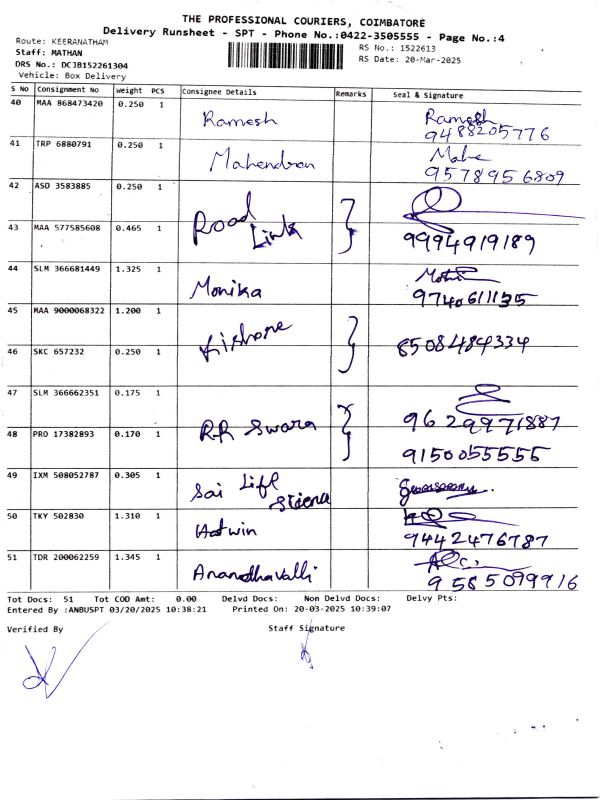 THE PROFESSIONAL COURIERS, COIMBATORE
Delivery Runsheet - SPT - Phone No.:0422-3505555 - Page No.:4
Route: KEERANATHAM
Staff: MATHAN
DRS No.: DCJB152261304
Vehicle: Box Delivery
RS No.: 1522613
RS Date: 20-Mar-2025
S No Consignment No Weight PCS Consignee Details Remarks Seal & Signature
40 MAA 868473420 0.250 1 Ramesh Ramesh
9488205776
41 TRP 6880791 0.250 1 Mahendran Mahe
9578956809
42 ASD 3583885 0.250 1 Road Link
43 MAA 577585608 0.465 1 9994919189
44 SLM 366681449 1.325 1 Monika
9740611135
45 MAA 9000068322 1.200 1 Kishore
46 SKC 657232 0.250 1 8508484334
47 SLM 366662351 0.175 1 9629971887
48 PRO 17382893 0.170 1 RR Swara 9150055555
49 IXM 508052787 0.305 1 Sai Life
50 TKY 502830 1.310 1 9442476787
51 TDR 200062259 1.345 1 Anandhavalli
9585099916
Tot Docs: 51 Tot COD Amt: 0.00 Delvd Docs: Non Delvd Docs: Delvy Pts:
Entered By :ANBUSPT 03/20/2025 10:38:21 Printed On: 20-03-2025 10:39:07
Verified By Staff Signature